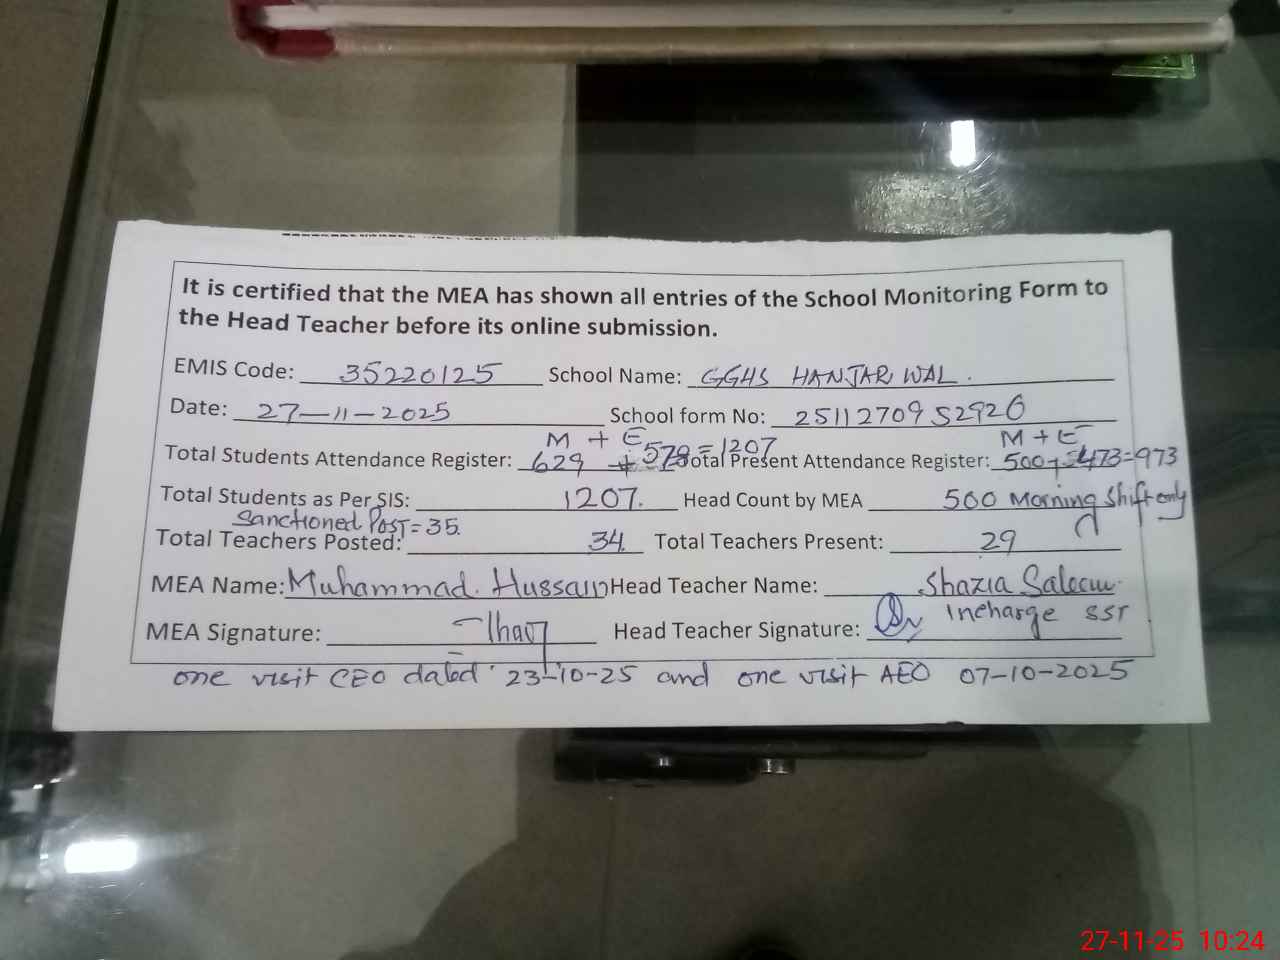 It is certified that the MEA has shown all entries of the School Monitoring Form to
the Head Teacher before its online submission.
EMIS Code: 35220125 School Name: GGHS HANJARWAL.
Date: 27-11-2025 School form No: 2511270952926
M + E M + E
Total Students Attendance Register: 629 + 578 = 1207 Total Present Attendance Register: 500 + 473 = 973
Total Students as Per SIS: 1207. Head Count by MEA 500 Morning Shift only
Sanctioned Post = 35.
Total Teachers Posted: 34 Total Teachers Present: 29
MEA Name: Muhammad. Hussain Head Teacher Name: Shazia Saleem
Incharge SST
MEA Signature: Head Teacher Signature:
one visit CEO dated 23-10-25 and one visit AEO 07-10-2025
27-11-25 10:24